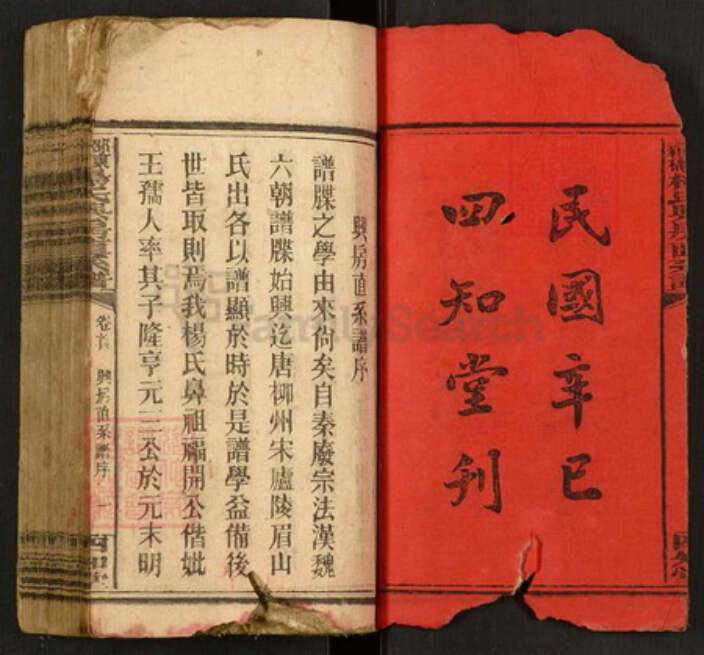 民國辛巳
四知堂刊
興房直系譜序
譜牒之學由來尙矣自秦廢宗法漢魏
六朝譜牒始興迄唐柳州宋廬陵眉山
氏出各以譜顯於時於是譜學益備後
世皆取則焉我楊氏鼻祖福開公偕妣
王孺人率其子隆亨元三公於元末明
卷首
興房直系譜序
一
FamilySearch